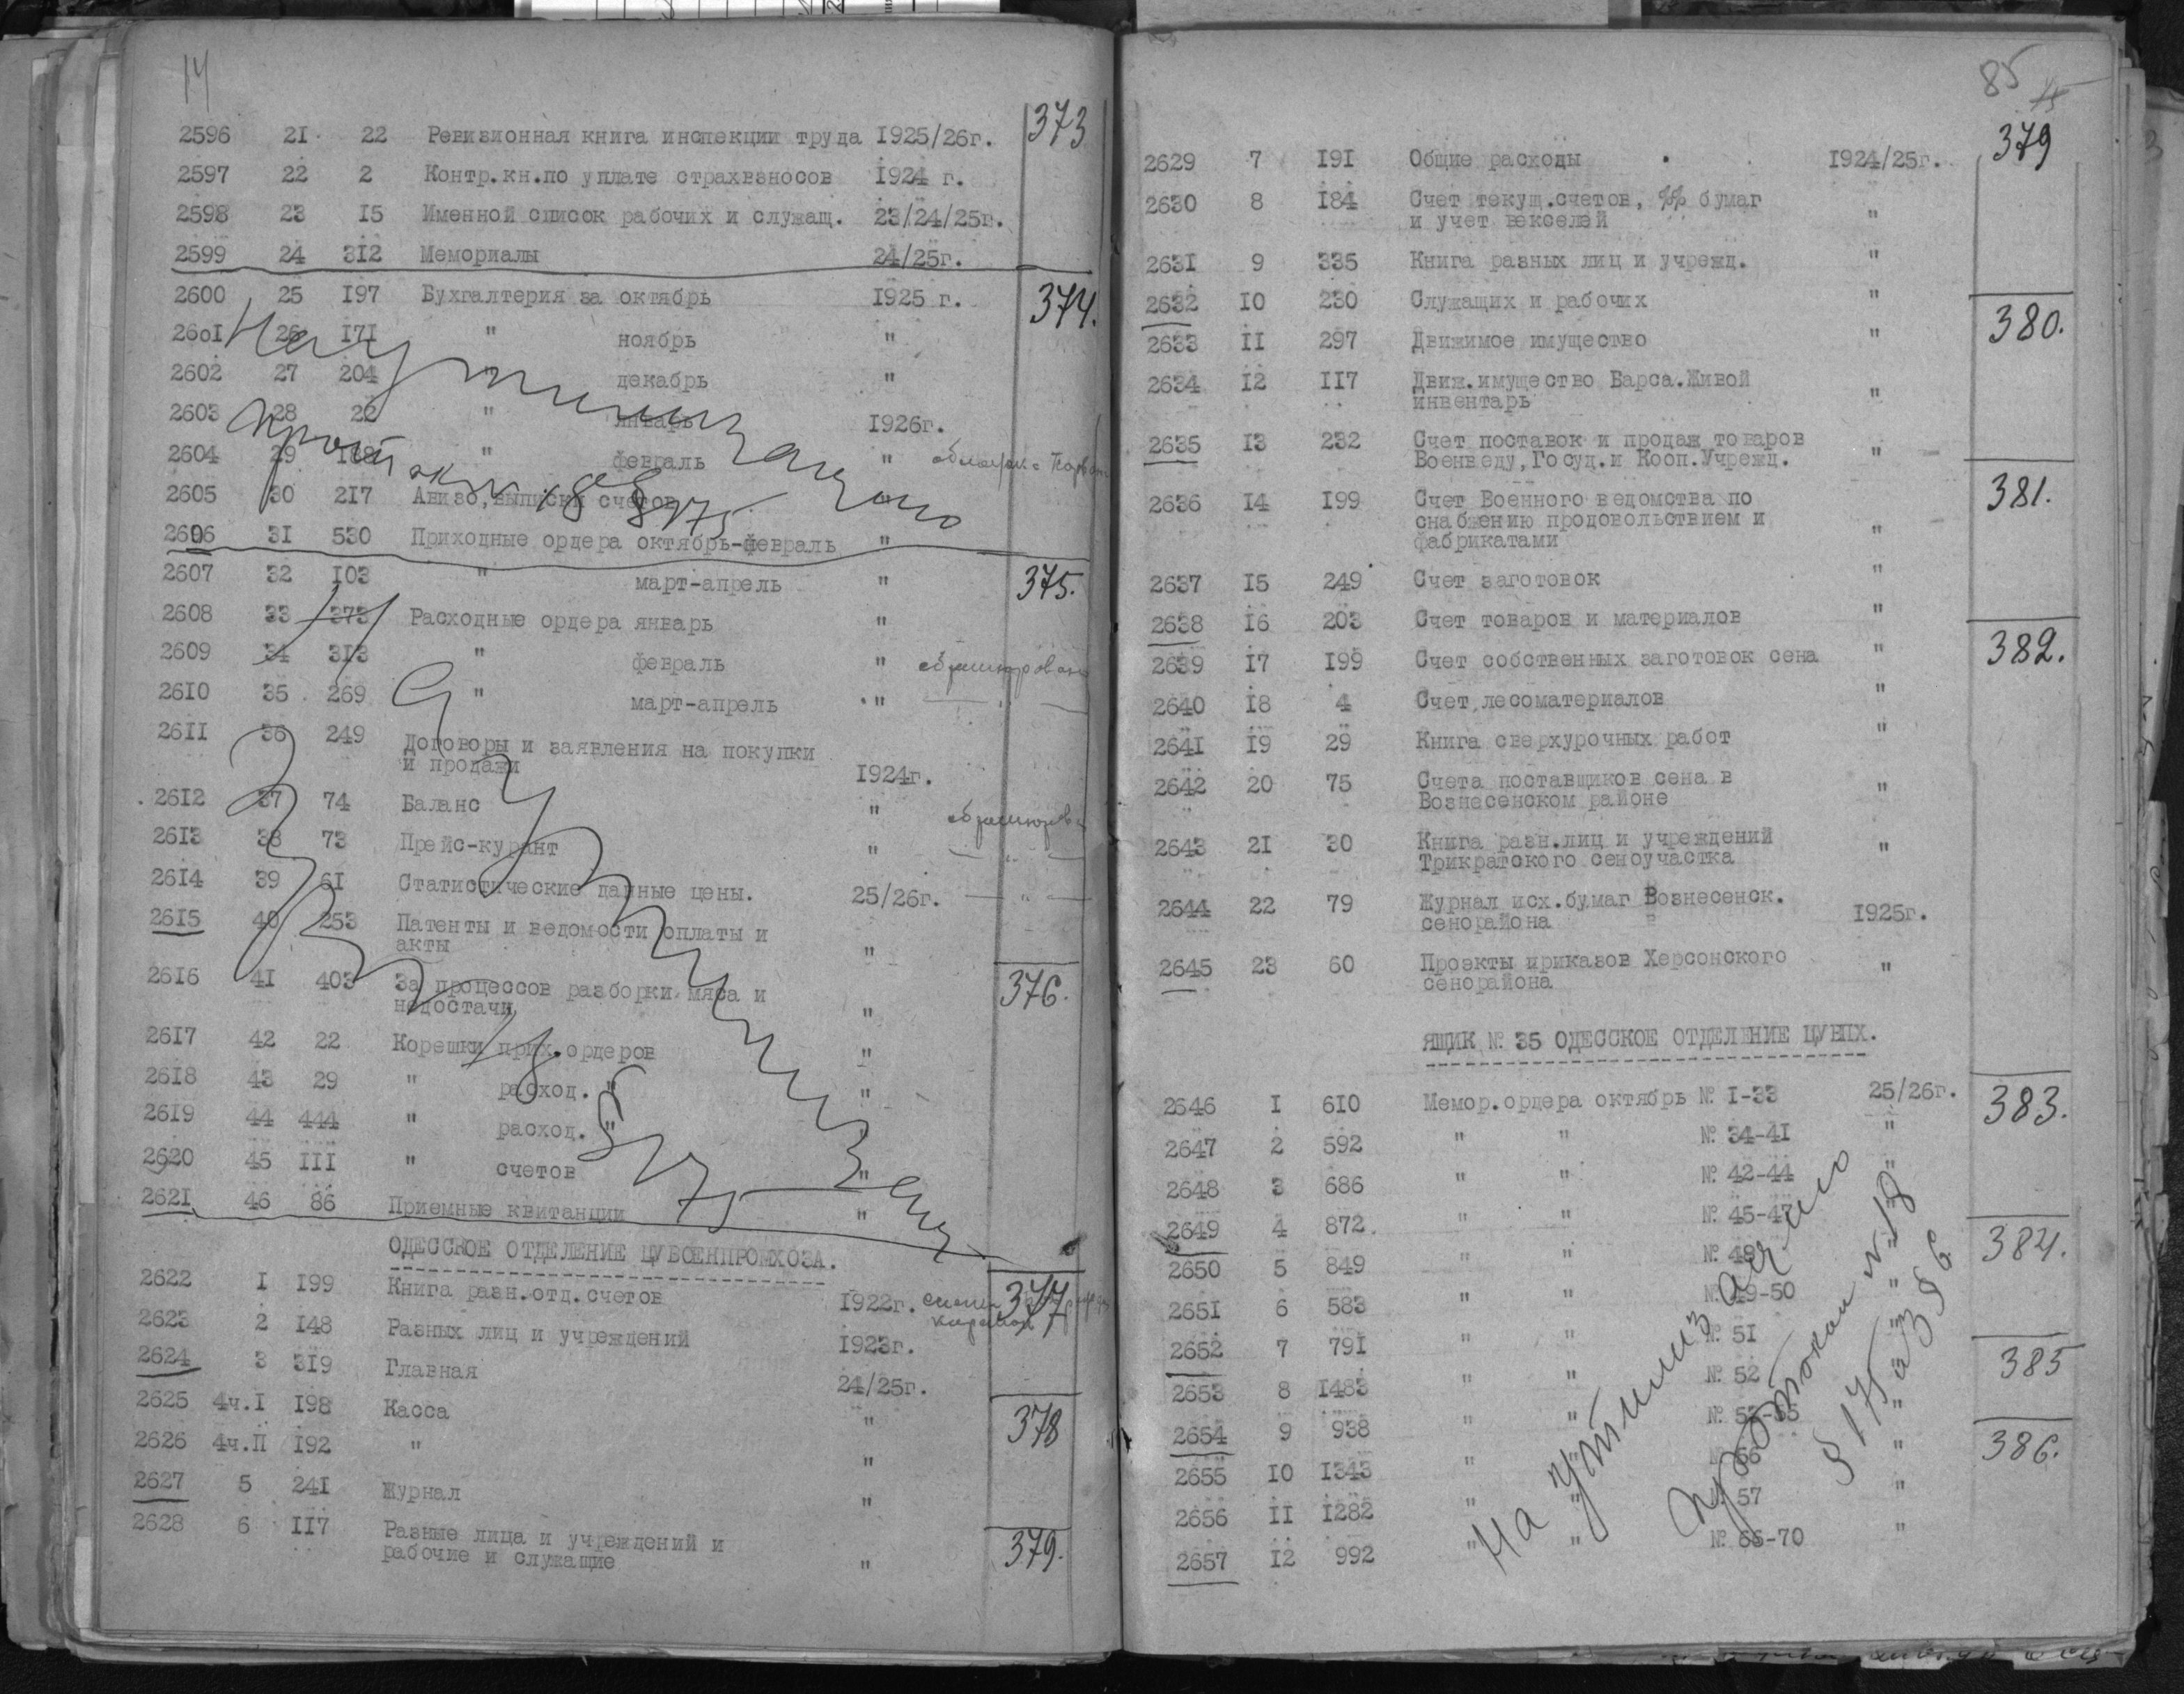 14
2596 21 22 Ревизионная книга инспекции труда 1925/26г. 373
2597 22 2 Контр.кн.по уплате страхвзносов 1924 г.
2598 23 15 Именной список рабочих и служащ. 23/24/25г.
2599 24 312 Мемориалы 24/25г.
2600 25 197 Бухгалтерия за октябрь 1925 г. 374.
2601 26 171 " ноябрь "
2602 27 204 " декабрь "
2603 28 22 " январь 1926г.
2604 29 188 " февраль "
2605 30 217 Авизо,выписки счетов "
2606 31 530 Приходные ордера октябрь-февраль "
На утилизацию
протокол 18 § 175
2607 32 103 " март-апрель " 375.
2608 33 373 Расходные ордера январь "
2609 34 313 " февраль " сброшюрован
2610 35 269 " март-апрель " — " —
2611 36 249 Договоры и заявления на покупки
и продажи 1924г.
2612 37 74 Баланс " сброшюров
2613 38 73 Прейс-курант " — " —
2614 39 61 Статистические данные цены. 25/26г. — " —
2615 40 253 Патенты и ведомости оплаты и
акты "
2616 41 403 За процессов разборки мяса и 376.
недостачи "
2617 42 22 Корешки прих.ордеров "
2618 43 29 " расход. " "
2619 44 444 " расход. " "
2620 45 111 " счетов "
2621 46 86 Приемные квитанции "
18 § 175
ОДЕССКОЕ ОТДЕЛЕНИЕ ЦУВОЕНПРОМХОЗА.
2622 1 199 Книга разн.отд.счетов 1922г. 377
2623 2 148 Разных лиц и учреждений 1923г.
2624 3 319 Главная 24/25г.
2625 4ч.I 198 Касса " 378
2626 4ч.II 192 " "
2627 5 241 Журнал "
2628 6 117 Разные лица и учреждений и 379.
рабочие и служащие "
85
15
2629 7 191 Общие расходы 1924/25г. 379
2630 8 184 Счет текущ.счетов, %% бумаг
и учет векселей "
2631 9 335 Книга разных лиц и учрежд. "
2632 10 230 Служащих и рабочих "
2633 11 297 Движимое имущество " 380.
2634 12 117 Движ.имущество Варса.Живой
инвентарь "
2635 13 232 Счет поставок и продаж товаров
Военведу,Госуд.и Кооп.Учрежд. "
2636 14 199 Счет Военного ведомства по 381.
снабжению продовольствием и
фабрикатами "
2637 15 249 Счет заготовок "
2638 16 203 Счет товаров и материалов "
2639 17 199 Счет собственных заготовок сена " 382.
2640 18 4 Счет лесоматериалов "
2641 19 29 Книга сверхурочных работ "
2642 20 75 Счета поставщиков сена в
Вознесенском районе "
2643 21 30 Книга разн.лиц и учреждений
Трикратского сеноучастка "
2644 22 79 Журнал исх.бумаг Вознесенск.
сенорайона 1925г.
2645 23 60 Проэкты приказов Херсонского
сенорайона "
ЯЩИК № 35 ОДЕССКОЕ ОТДЕЛЕНИЕ ЦУВПХ.
2646 1 610 Мемор.ордера октябрь № 1-33 25/26г. 383.
2647 2 592 " " № 34-41 "
2648 3 686 " " № 42-44 "
2649 4 872 " " № 45-47 "
2650 5 849 " " № 48 " 384.
2651 6 583 " " № 49-50 "
2652 7 791 " " № 51 "
2653 8 1483 " " № 52 " 385
2654 9 938 " " № 53-55 "
2655 10 1343 " " 56 " 386.
2656 11 1282 " " 57 "
2657 12 992 " " № 66-70 "
На утилизацию
протокол № 18
§ 175